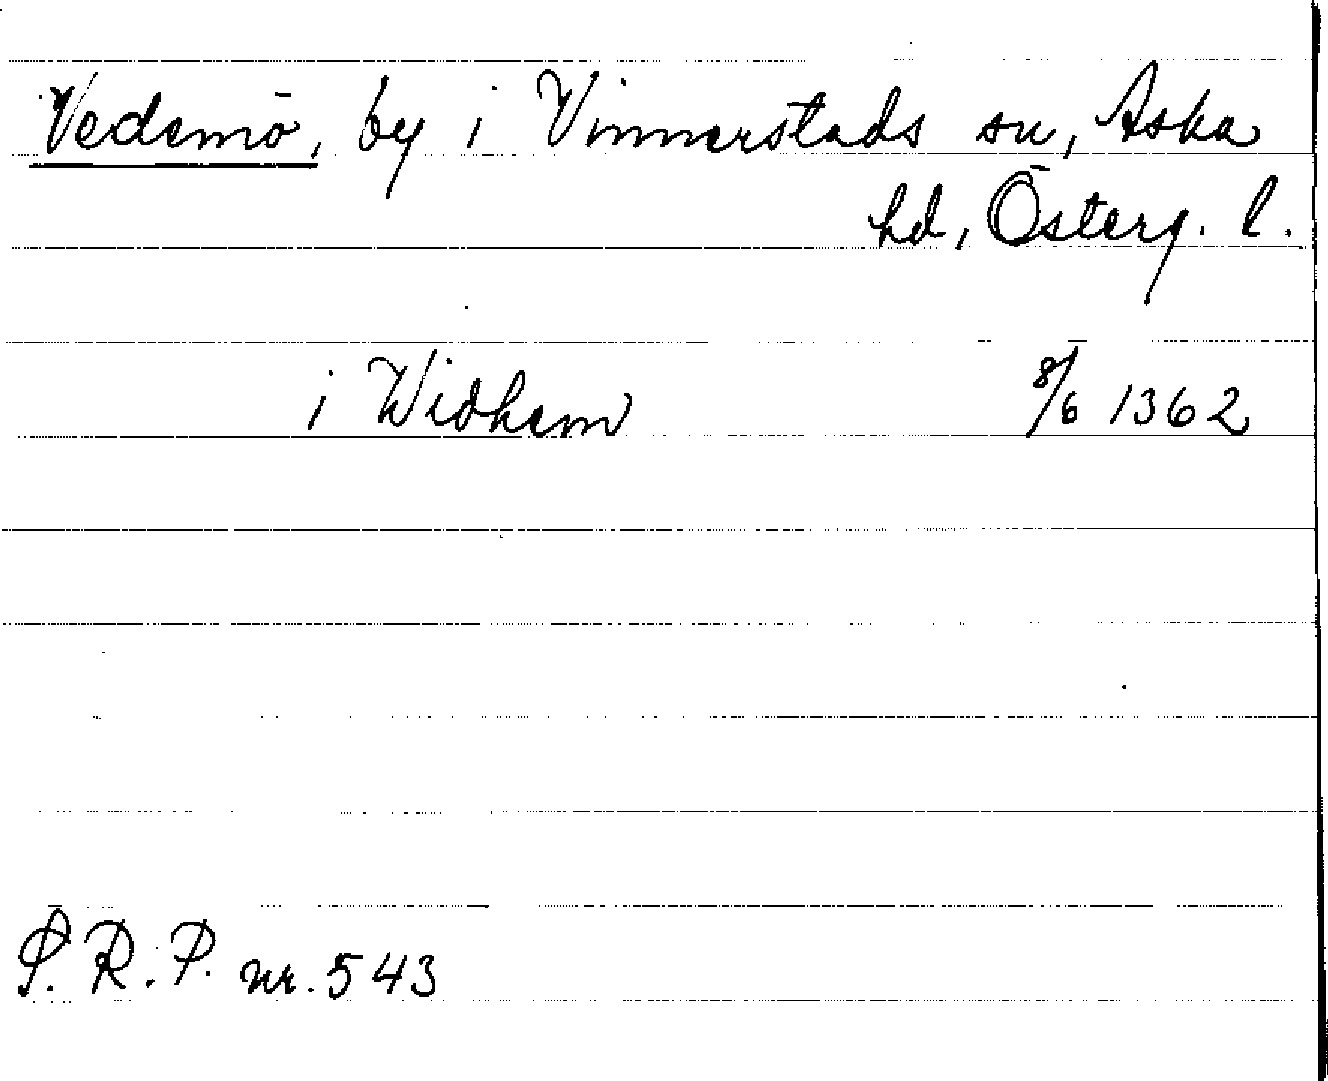 Vedemö, by i Vinnerstads sn, Aska
hd, Österg. l.
i Widhem 8/6 1362
S. R. P. nr. 543